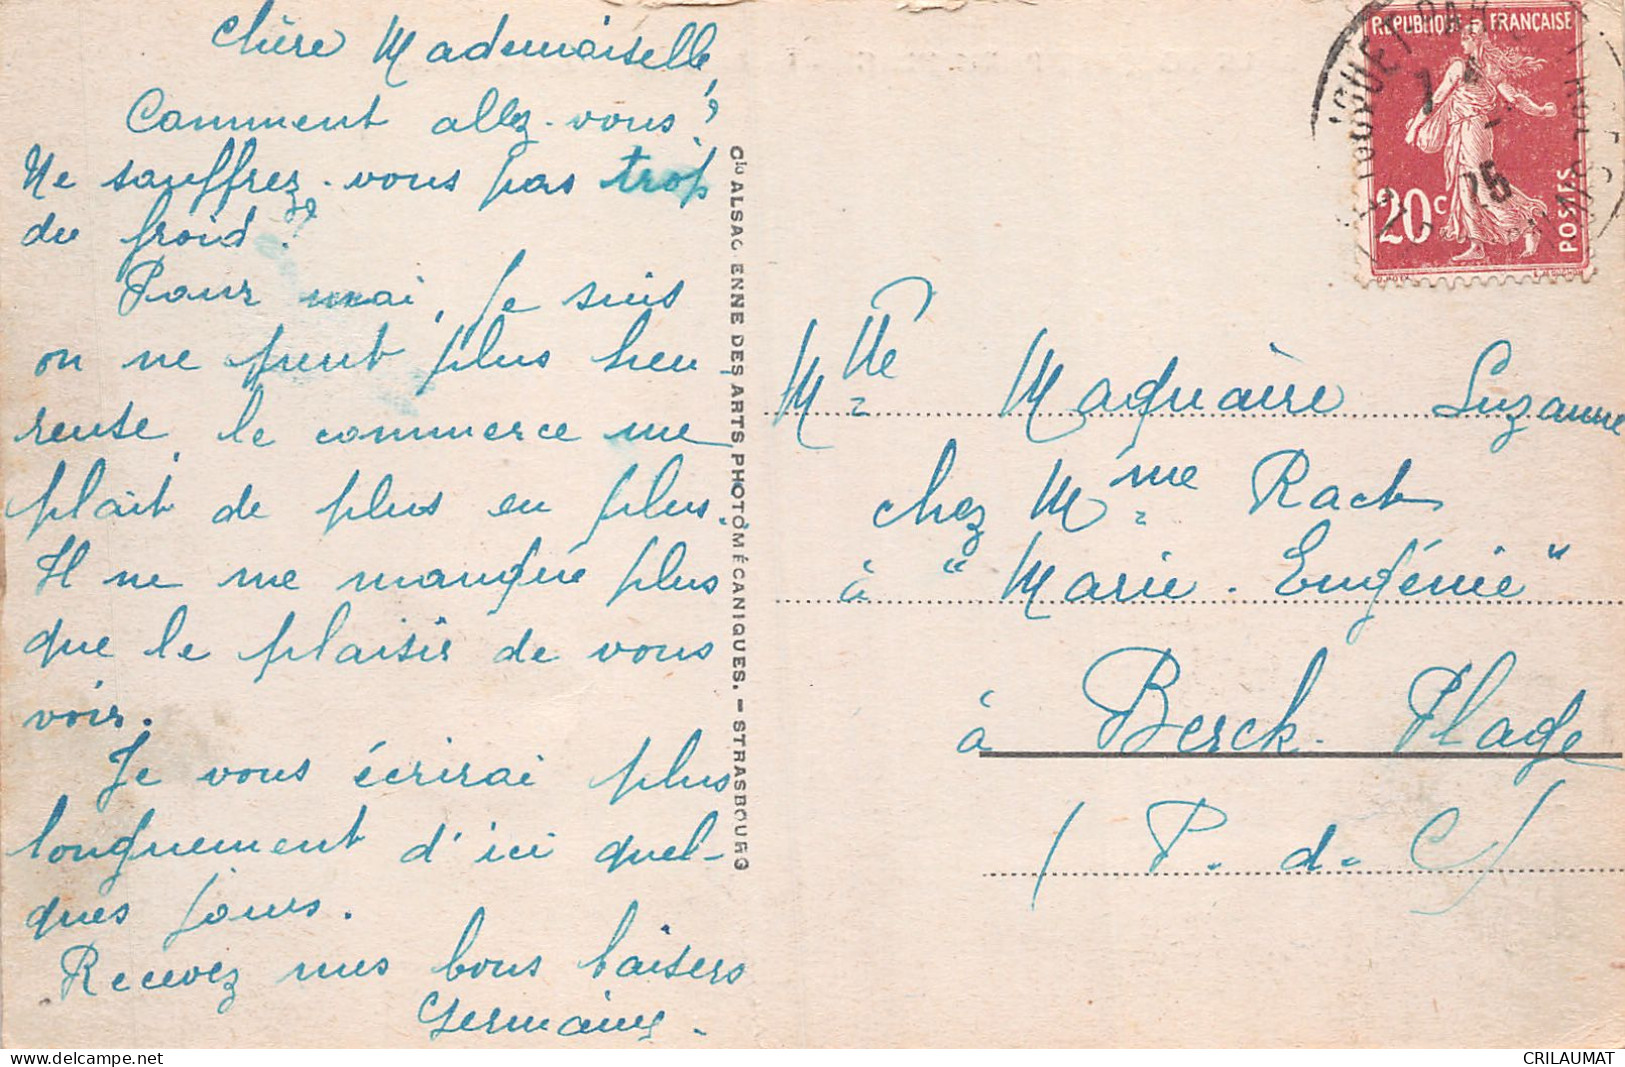 Chère Mademoiselle,
Comment allez-vous?
Ne souffrez-vous pas trop
du froid?
Pour moi, je suis
on ne peut plus heu
reuse, le commerce me
plaît de plus en plus.
Il ne me manque plus
que le plaisir de vous
voir.
Je vous écrirai plus
longuement d'ici quel-
ques jours.
Recevez mes bons baisers
Germaine.
Cie ALSACIENNE DES ARTS PHOTOMÉCANIQUES. - STRASBOURG
REPUBLIQUE FRANÇAISE
20c
POSTES
Mlle Maquaire Suzanne
chez Mme Rack
à "Marie-Eugénie"
à Berck-Plage
(P.d.C)
CRILAUMAT